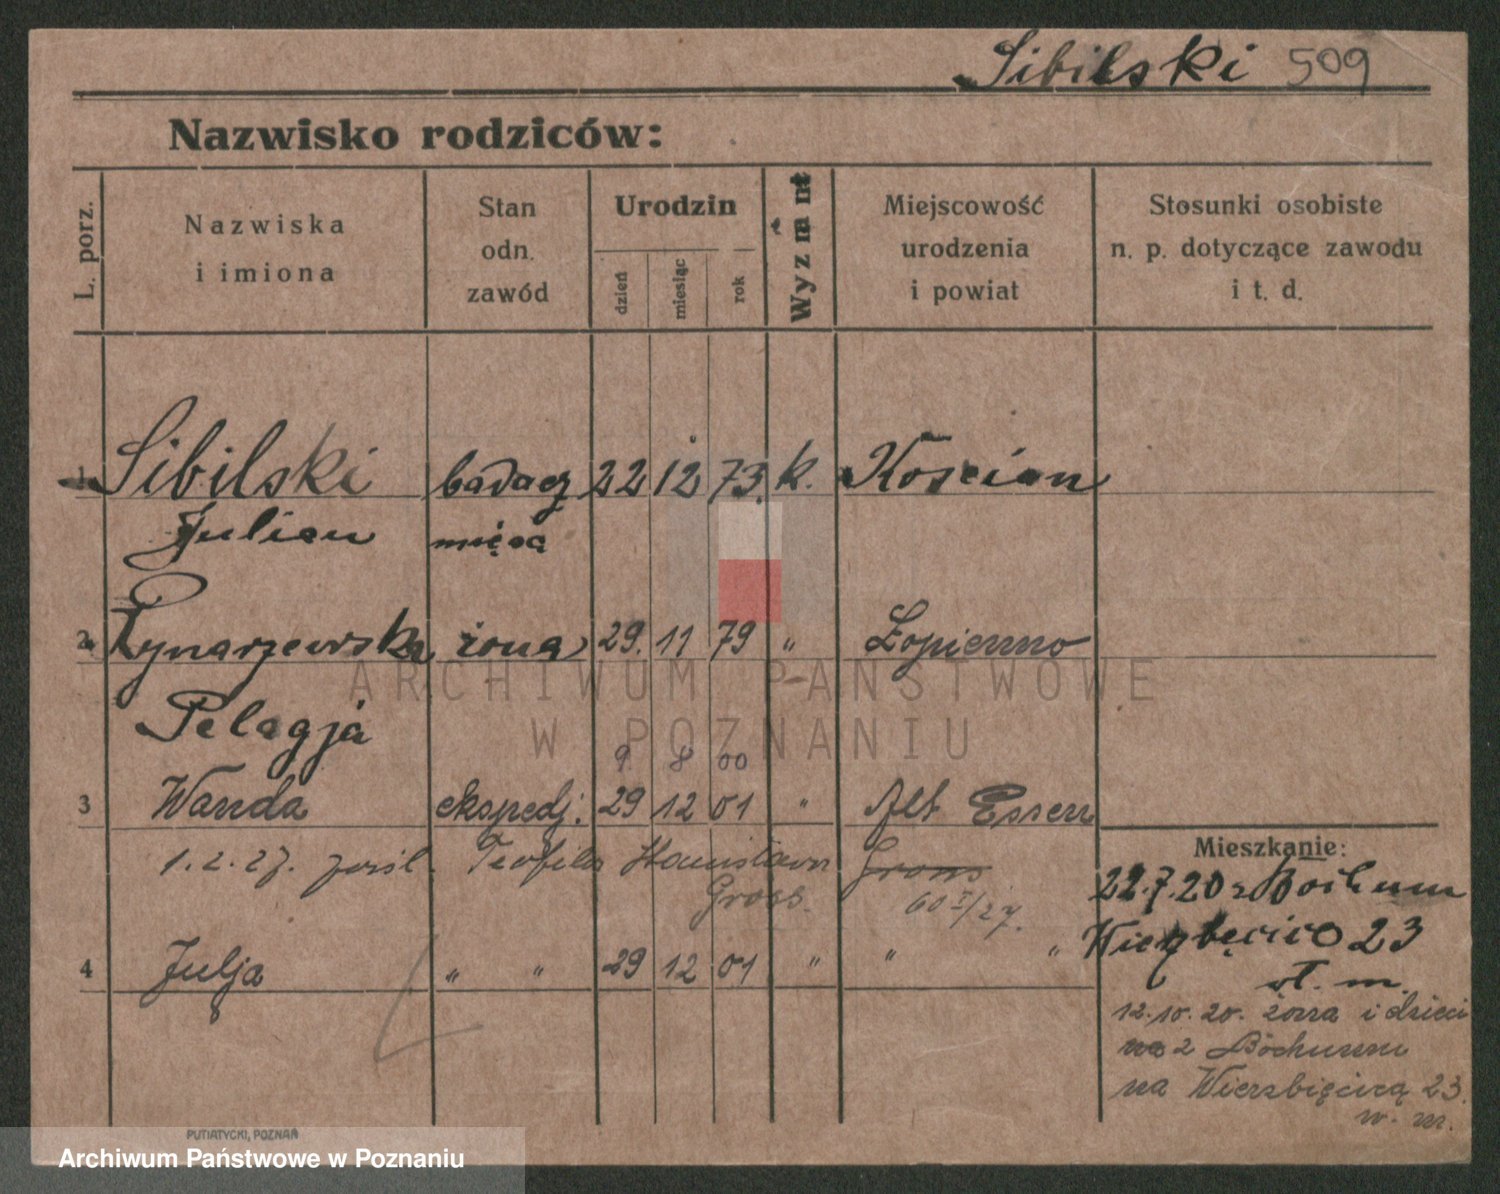 Sibilski 509
Nazwisko rodziców:
L. porz.
Nazwiska
i imiona
Stan
odn.
zawód
Urodzin
dzień
miesiąc
rok
Miejscowość
urodzenia
i powiat
Stosunki osobiste
n. p. dotyczące zawodu
i t. d.
1 Sibilski badacz 22 12 73. k. Koscian
Julian mięsa
2 Rynarzewska żona 29. 11 79 " Łopienno
Pelagja
9 8 00
3 Wanda ekspedj. 29 12 01 " Alt Essen
1.2.27. pośl. Teofila Stanisława Gross
Gross. 60 I/27.
4 Julja " " 29 12 01 " " "
Mieszkanie:
22.7.20 z Bochum
23
wł. m.
12.10.20. żona i dzieci
z Bochum
na Wierzbięcicą 23.
w. m.
PUTIATYCKI, POZNAŃ
ARCHIWUM PAŃSTWOWE
W POZNANIU
Archiwum Państwowe w Poznaniu